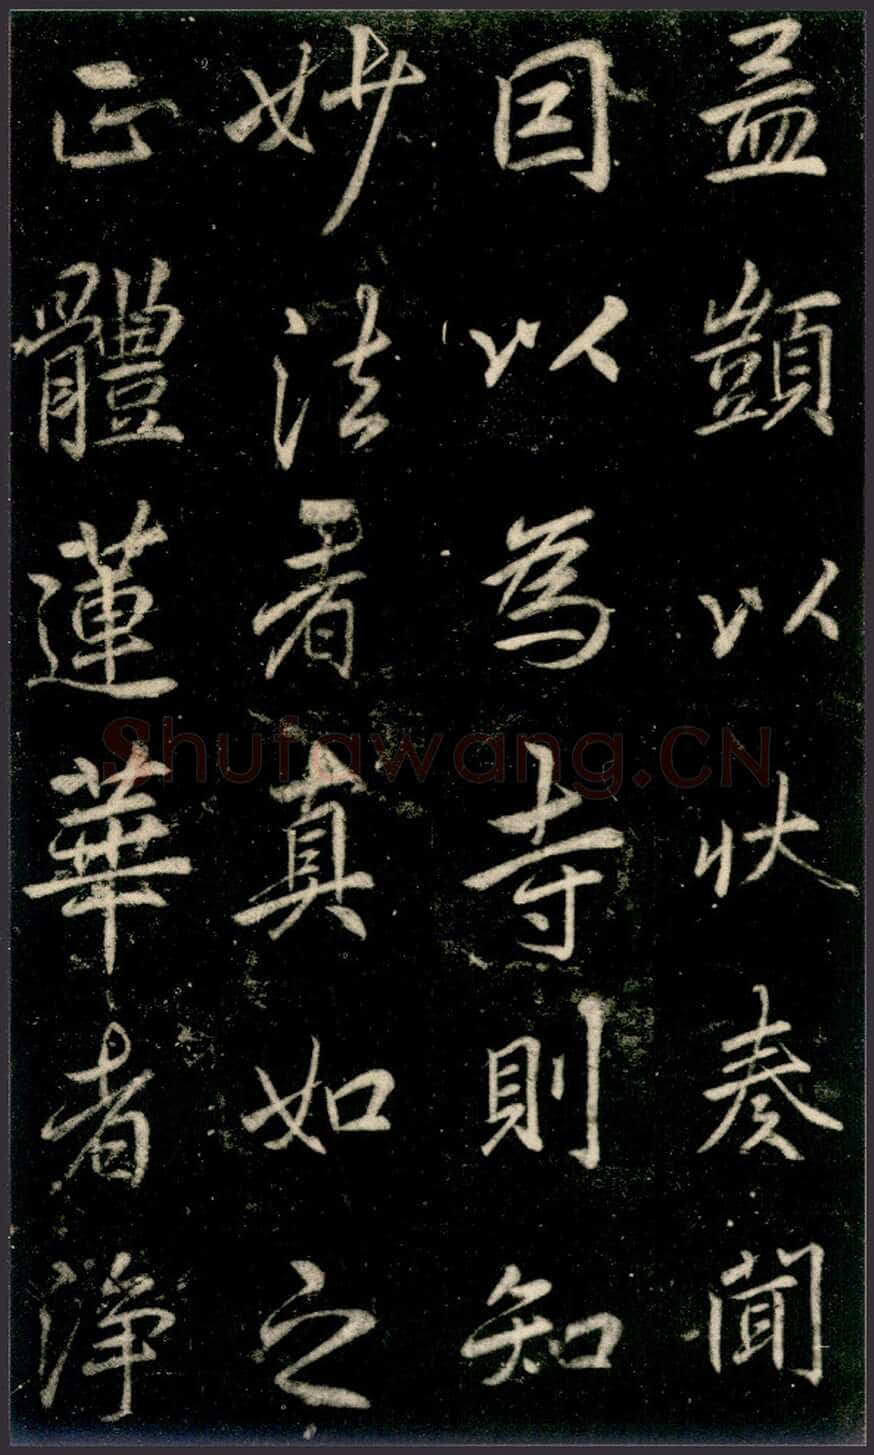 孟顗以状奏聞
因以為寺則知
妙法者真如之
正體蓮華者淨
Shufawang.CN